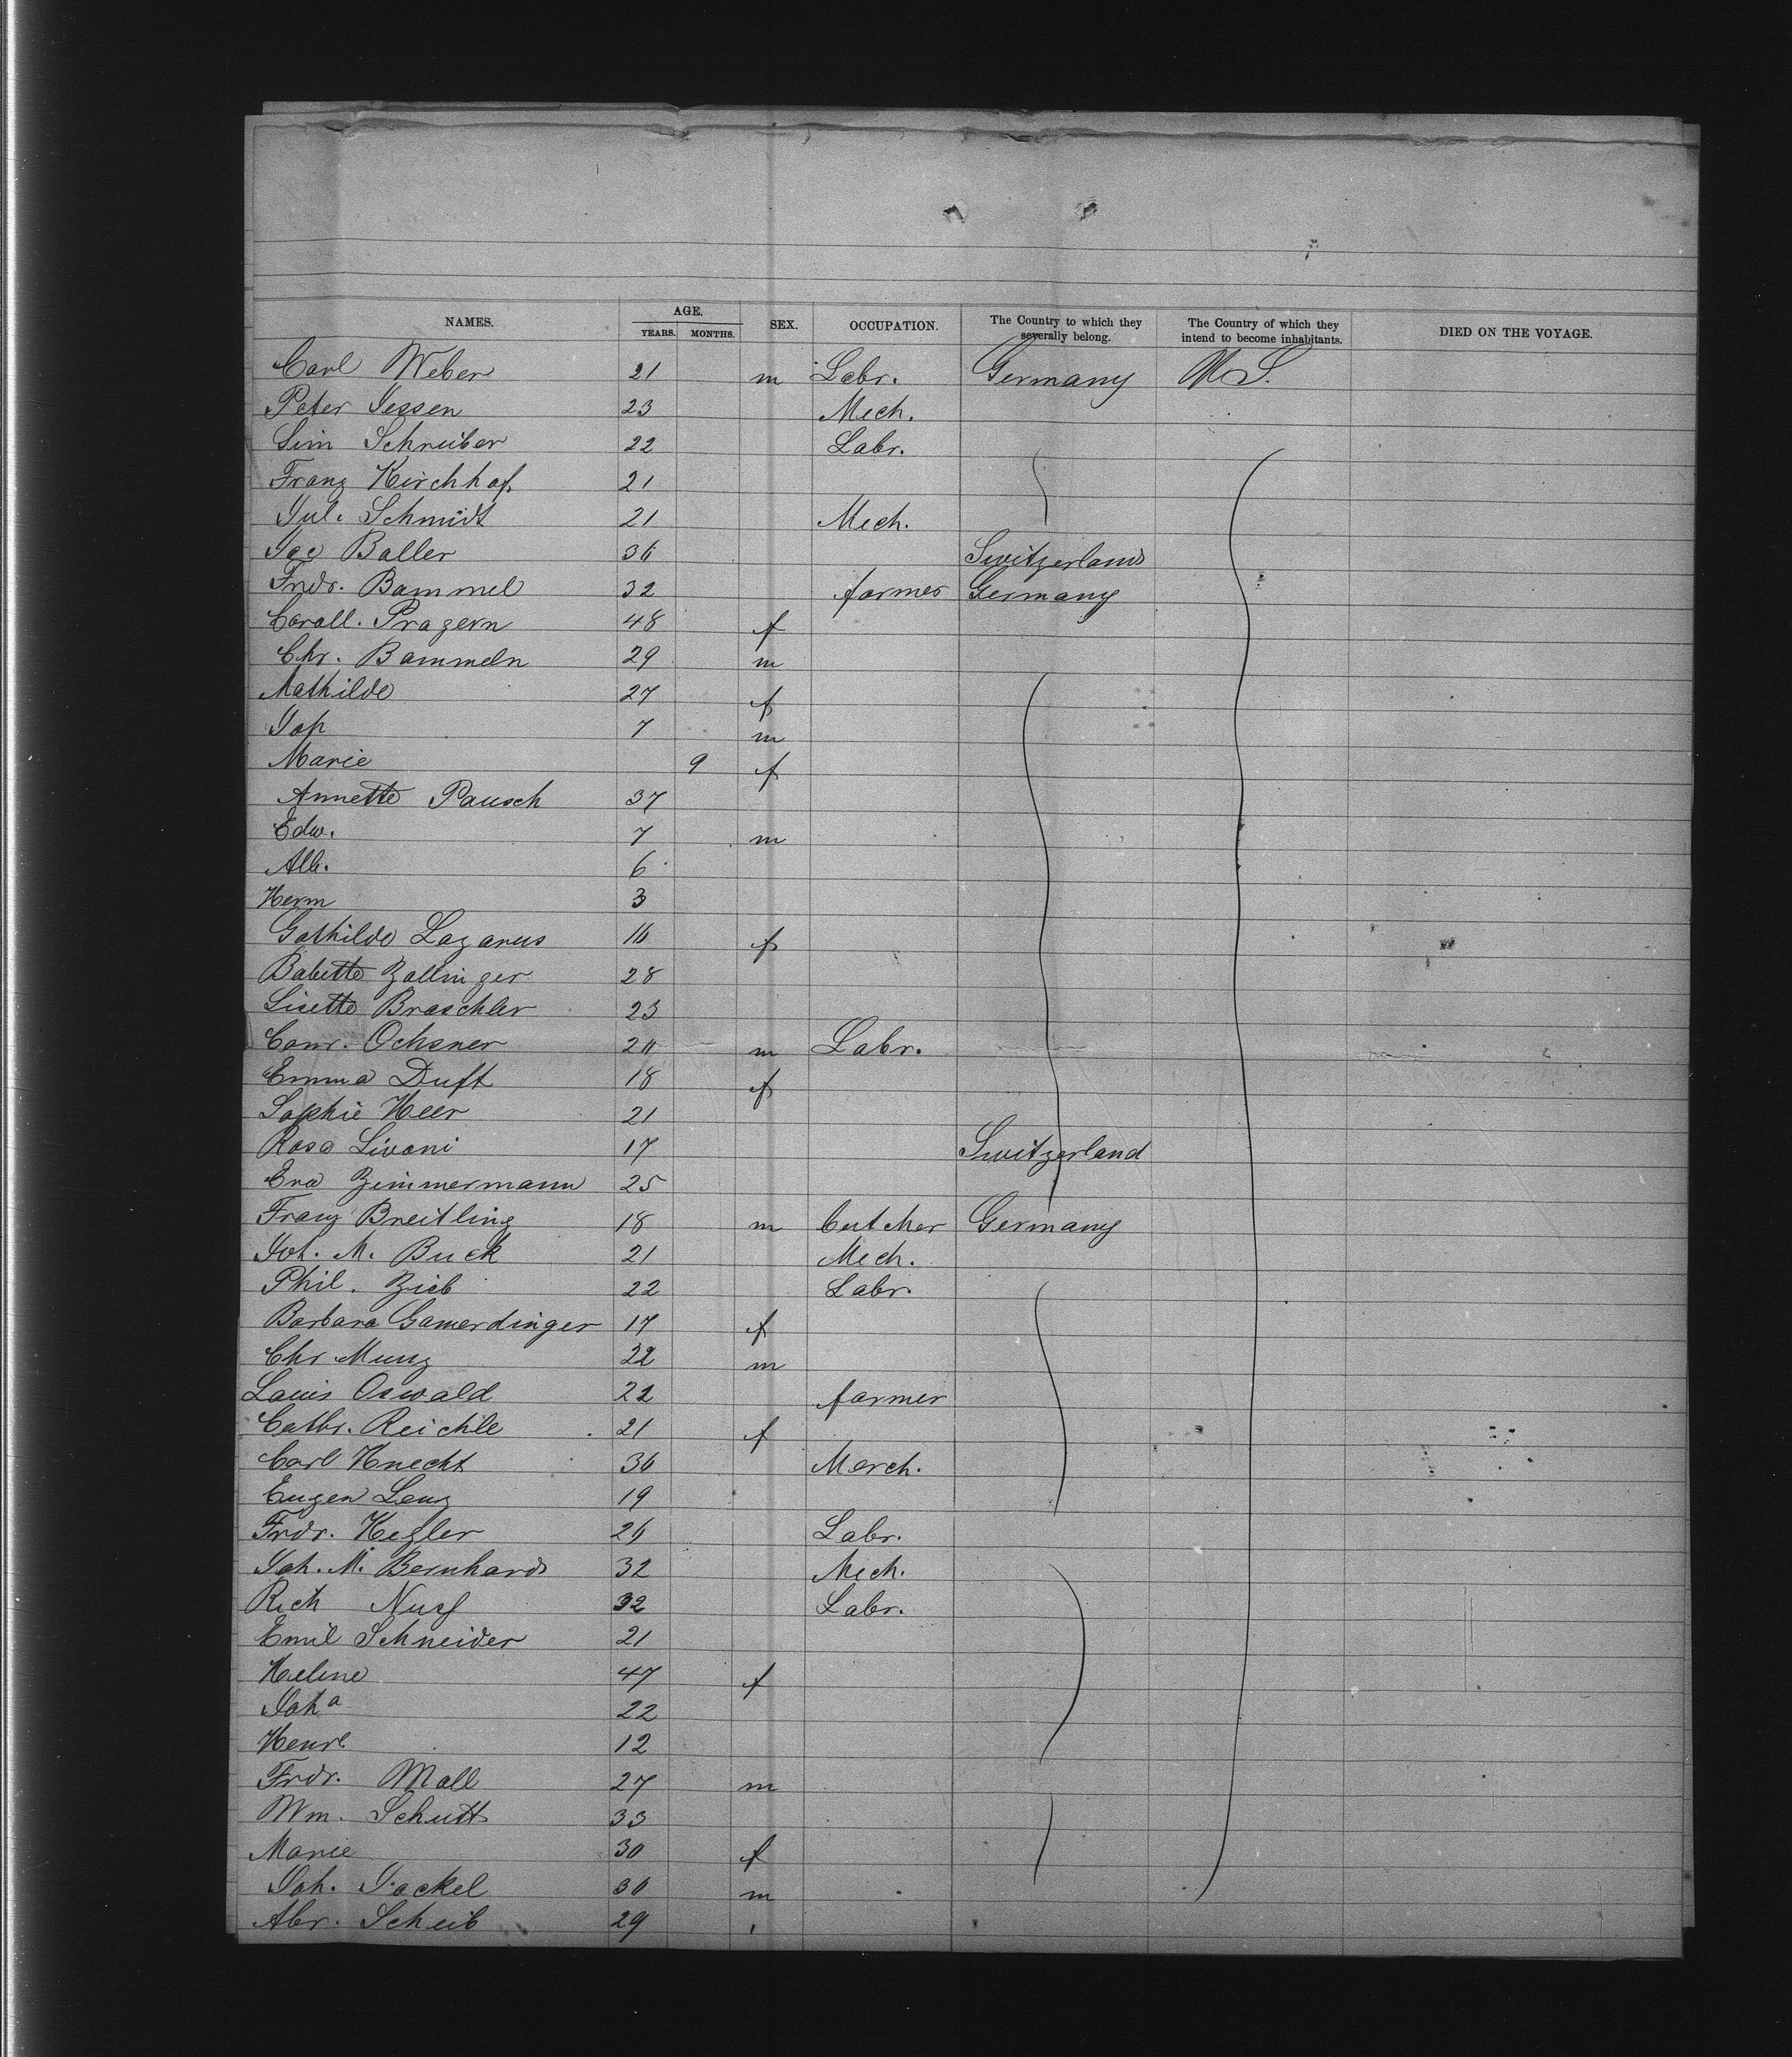 NAMES. AGE. SEX. OCCUPATION. The Country to which they severally belong. The Country of which they intend to become inhabitants. DIED ON THE VOYAGE.
YEARS. MONTHS.
Carl Weber 21 m Labr. Germany U S.
Peter Jessen 23 Mech.
Sim Schreiber 22 Labr.
Franz Kirchhof 21
Jul. Schmidt 21 Mech.
Jac Baller 36 Switzerland
Frdr. Bammel 32 farmer Germany
Carall. Prazern 48 f
Chr. Bammeln 29 m
Mathilde 27 f
Jos 7 m
Marie 9 f
Annette Pausch 37
Edw. 7 m
Alb. 6
Herm 3
Gathilde Lazarus 16 f
Babette Zollinger 28
Lisette Braschler 23
Conr. Ochsner 26 m Labr.
Emma Duft 18 f
Sophie Heer 21
Rosa Livoni 17 Switzerland
Eva Zimmermann 25
Franz Breitling 18 m butcher Germany
Joh. M. Buck 21 Mech.
Phil. Zieb 22 Labr.
Barbara Gamerdinger 17 f
Chr Munz 22 m
Louis Oswald 22 farmer
Cathr. Reichle 21 f
Carl Knecht 36 Merch.
Eugen Lenz 19
Frdr. Kegler 26 Labr.
Joh. M. Bernhard 32 Mech.
Rich 32 Labr.
Emil Schneider 21
Helene 47 f
Joha 22
Henr. 12
Frdr. Moll 27 m
Wm. Schutt 33
Marie 30 f
Joh. Jackel 30 m
Abr. Scheib 29